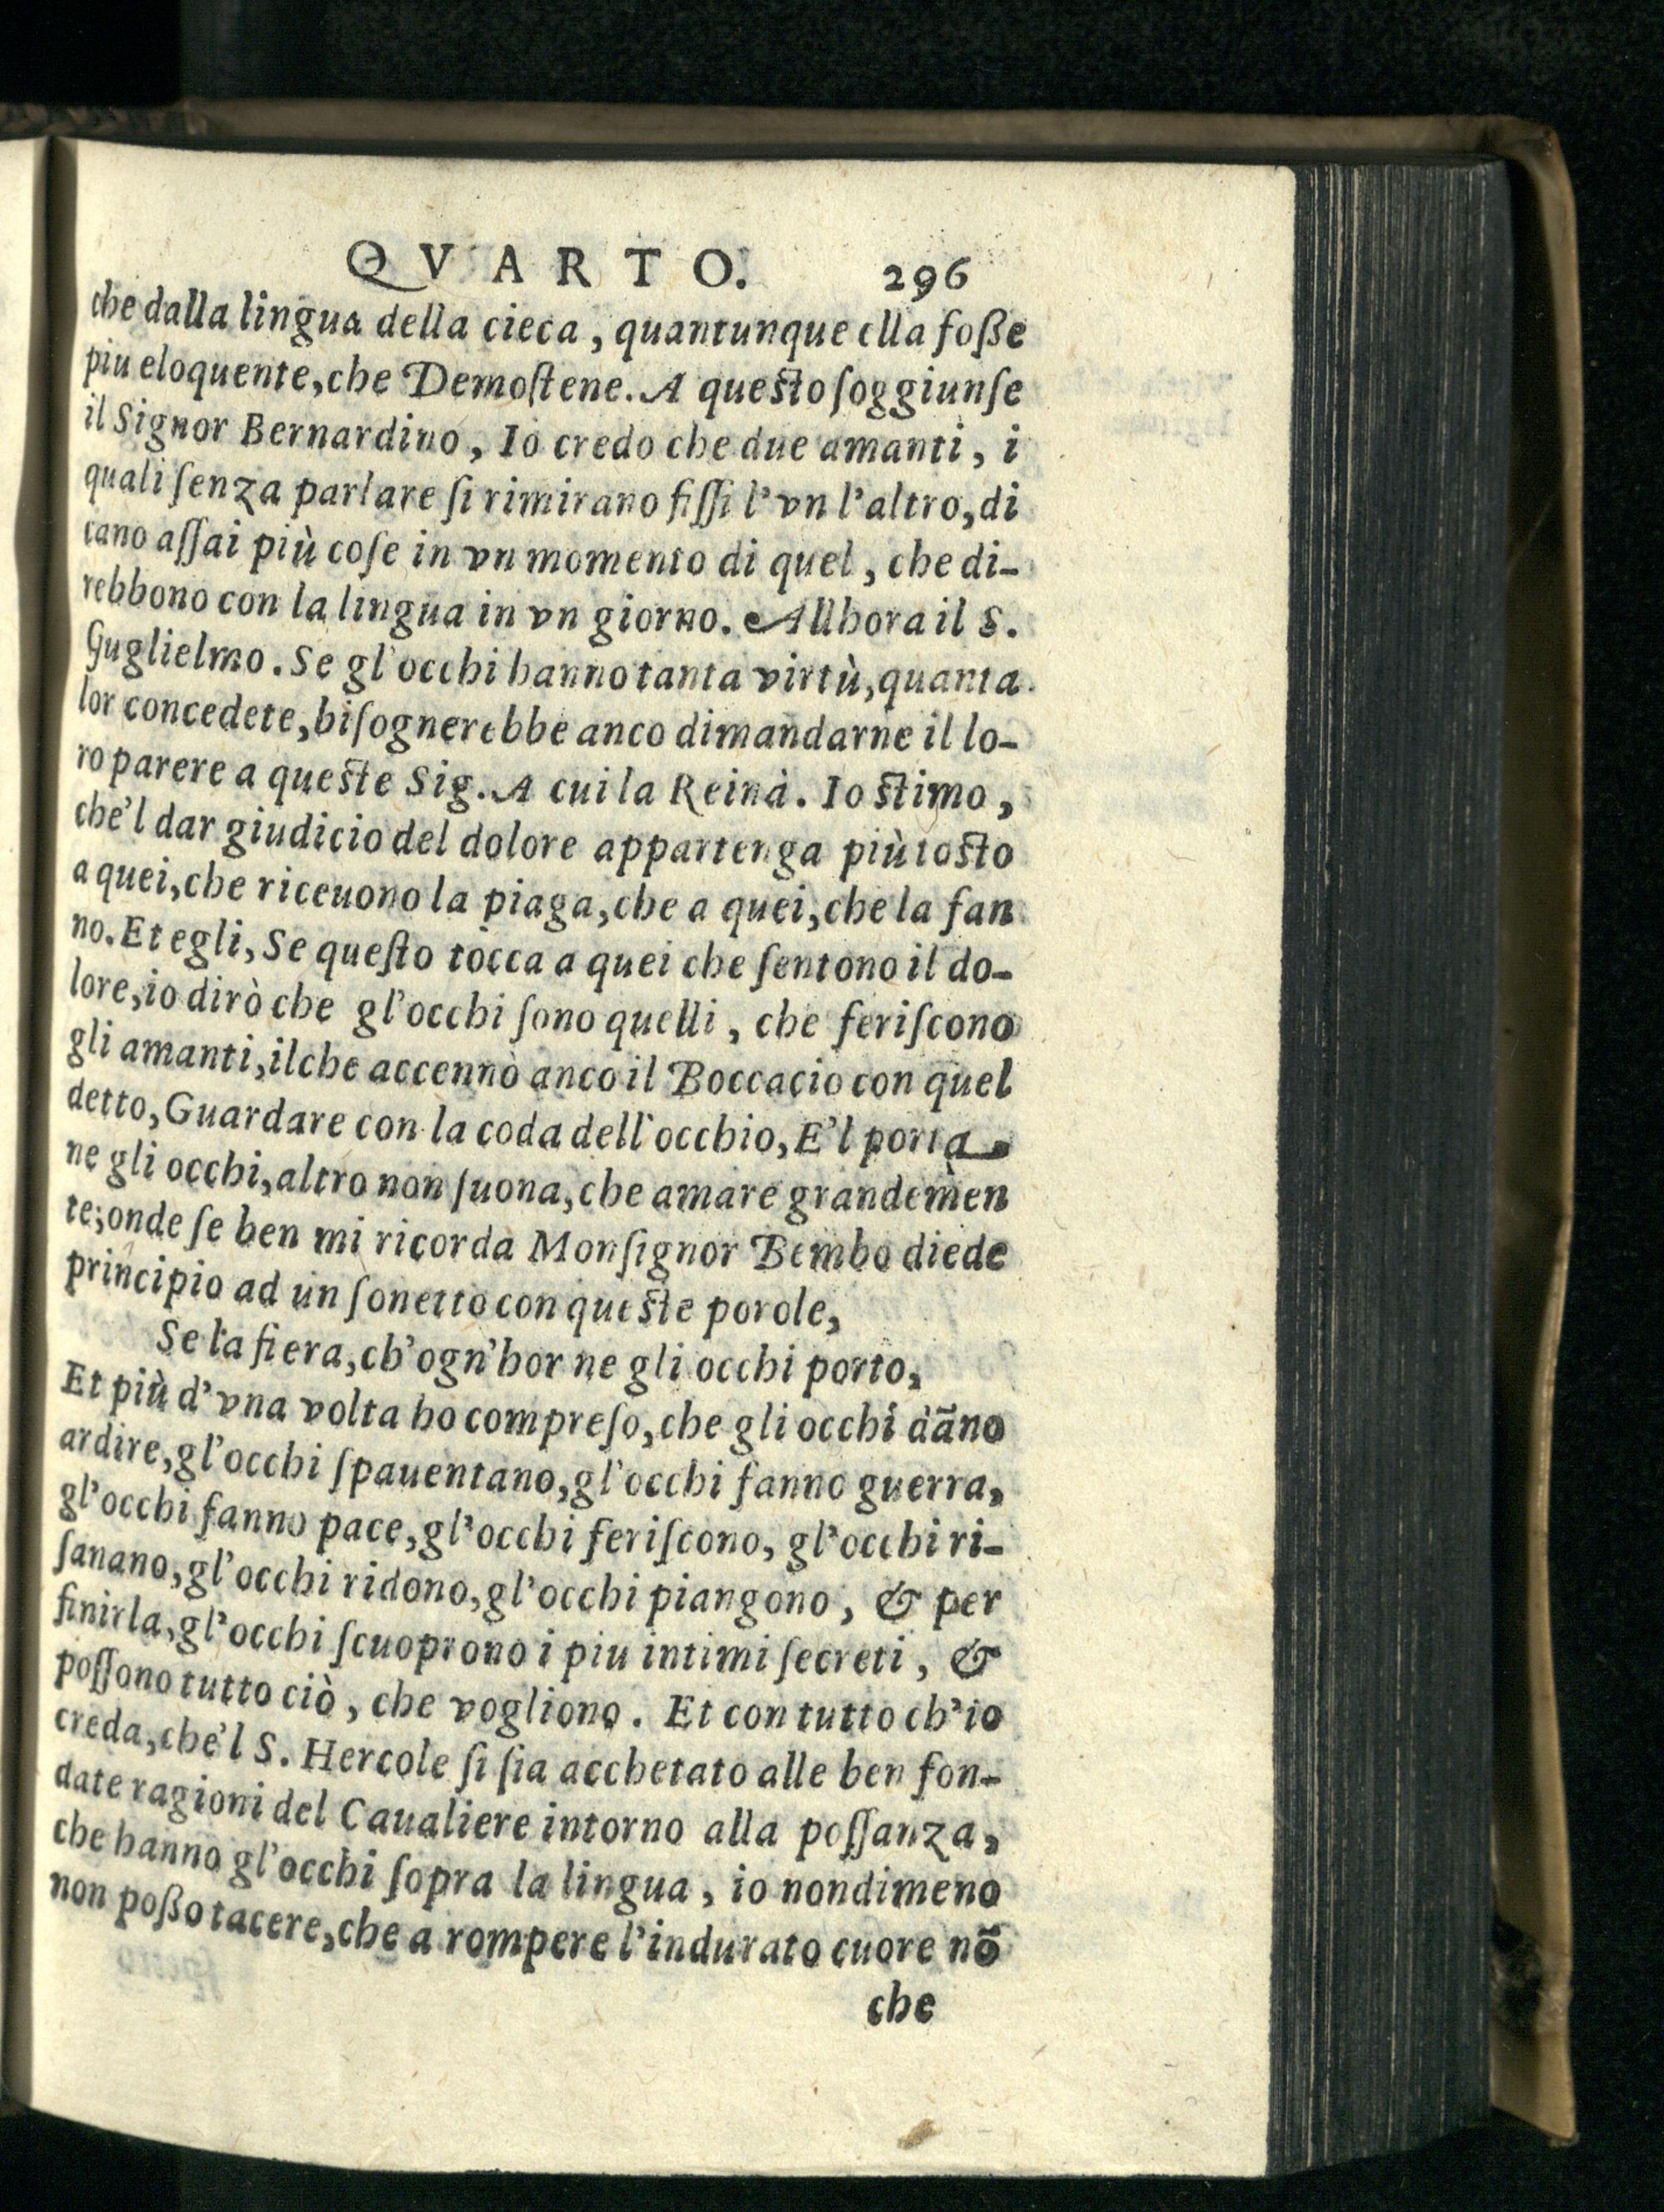 QVARTO. 296
che dalla lingua della cieca, quantunque ella foſſe
piu eloquente, che Demoſtene. A queſto ſoggiunſe
il Signor Bernardino, Io credo che due amanti, i
quali ſenza parlare ſi rimirano fiſſi l'vn l'altro, di
cano aſſai più coſe in vn momento di quel, che di-
rebbono con la lingua in vn giorno. Allhora il S.
Guglielmo. Se gl'occhi hanno tanta virtù, quanta
lor concedete, biſognerebbe anco dimandarne il lo-
ro parere a queſte Sig. A cui la Reina. Io ſtimo,
che'l dar giudicio del dolore appartenga più toſto
a quei, che riceuono la piaga, che a quei, che la fan
no. Et egli, Se queſto tocca a quei che ſentono il do-
lore, io dirò che gl'occhi ſono quelli, che feriſcono
gli amanti, ilche accennò anco il Boccacio con quel
detto, Guardare con la coda dell'occhio, E'l porta
ne gli occhi, altro non ſuona, che amare grandemen
te; onde ſe ben mi ricorda Monſignor Bembo diede
principio ad un ſonetto con queſte porole,
Se la fiera, ch'ogn'hor ne gli occhi porto,
Et più d'vna volta ho compreſo, che gli occhi dãno
ardire, gl'occhi ſpauentano, gl'occhi fanno guerra,
gl'occhi fanno pace, gl'occhi feriſcono, gl'occhi ri-
ſanano, gl'occhi ridono, gl'occhi piangono, & per
finirla, gl'occhi ſcuoprono i piu intimi ſecreti, &
poſſono tutto ciò, che vogliono. Et con tutto ch'io
creda, che'l S. Hercole ſi ſia acchetato alle ben fon-
date ragioni del Caualiere intorno alla poſſanza,
che hanno gl'occhi ſopra la lingua, io nondimeno
non poſſo tacere, che a rompere l'indurato cuore nõ
che